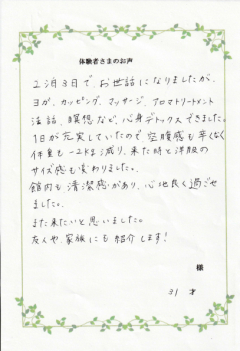 体験者さまのお声
2泊3日で、お世話になりましたが、
ヨガ、カッピング、マッサージ、アロマトリートメント
法話、瞑想など、心身デトックスできました。
1日が充実していたので空腹感も辛くなく
体重も-2kg減り、来た時と洋服の
サイズ感も変わりました。
館内も清潔感があり、心地良く過ごせ
ました。
また来たいと思いました。
友人や家族にも紹介します!
様
31 才